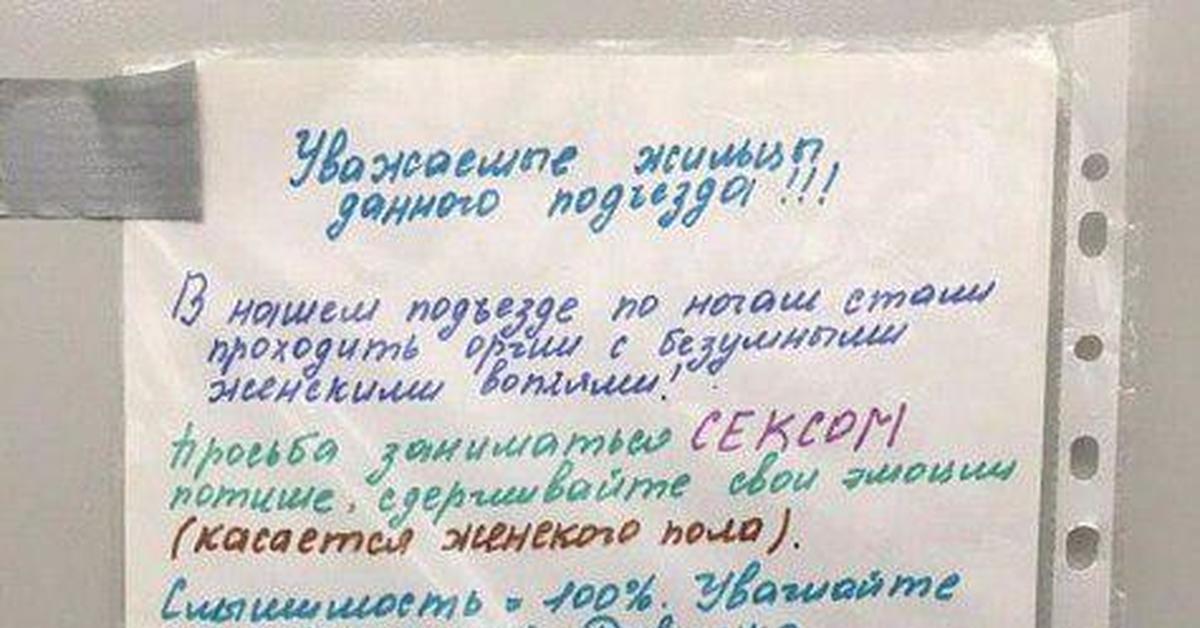 Уважаемые жильцы
данного подъезда!!!
В нашем подъезде по ночам стали
проходить оргии с безумными
женскими воплями!
Просьба заниматься СЕКСОМ
потише, сдерживайте свои эмоции
(касается женского пола).
Слышимость = 100%. Уважайте